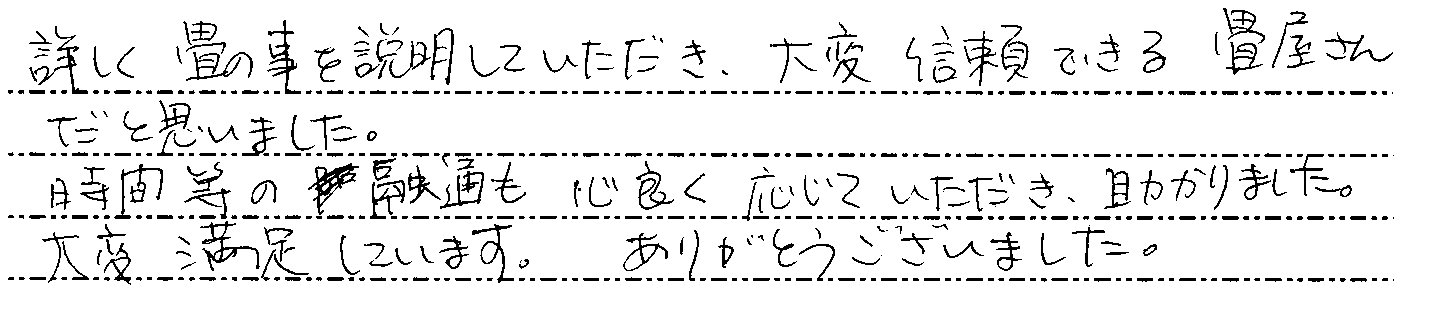 詳しく畳の事を説明していただき、大変信頼できる畳屋さん
だと思いました。
時間等の融通も心良く応じていただき、助かりました。
大変満足しています。ありがとうございました。